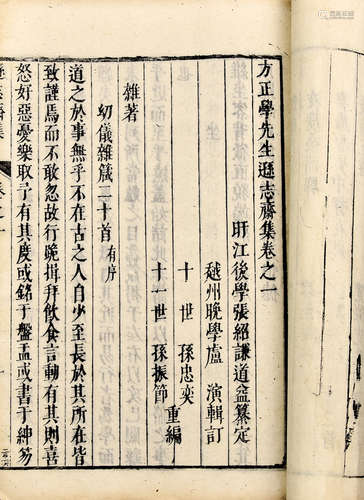 方正學先生遜志齋集卷之一
盱江後學張紹謙道益纂定
越州晚學盧演輯訂
十世孫忠奕
十一世孫振節
重編
雜著
幼儀雜箴二十首有序
道之於事無乎不在古之人自少至長於其所在皆
致謹焉而不敢忽故行跪揖拜飲食言動有其則喜
怒好惡憂樂取予有其度或銘于盤盂或書于紳笏